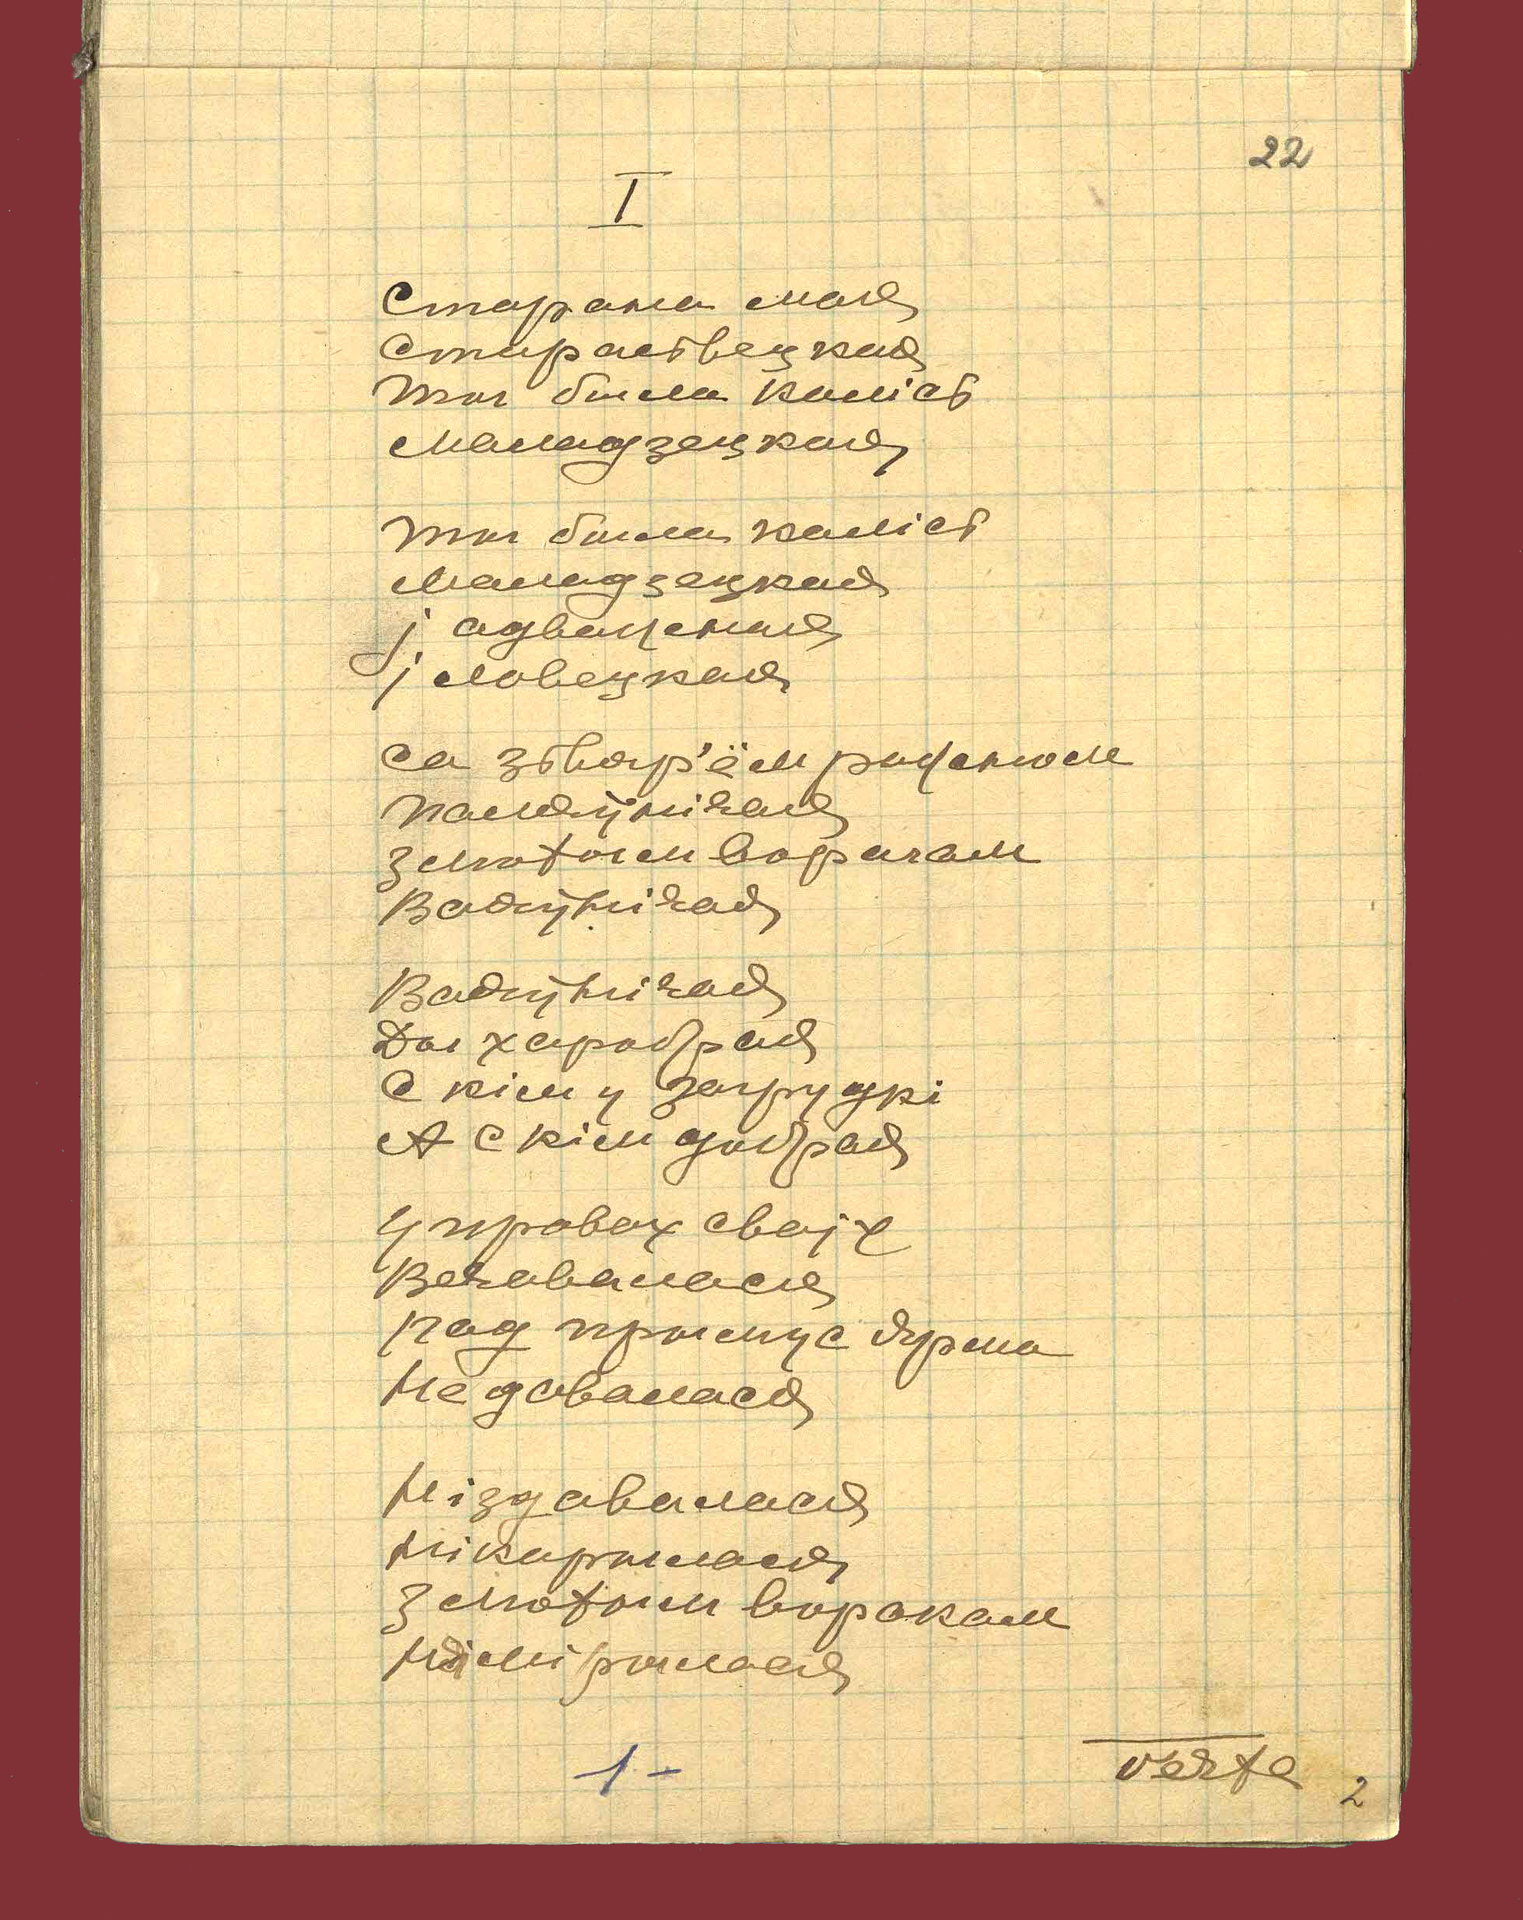 22
I
Старана мая
Старасвецкая
Ты была калісь
Маладзецкая
Ты была калісь
Маладзецкая
j адважная
j ловецкая
Са зьвяр'ём рыжым
Паляўнічая
З лютым ворагам
Ваяўнічая
Ваяўнічая
Ды харобрая
С кім у загрудкі
А с кім добрая
У правох сваjх
Вечавалася
Над прымус ярма
Не давалася
Ні здавалася
Ні карылася
З лютым ворокам
Ні мірылася
1 -
verte
2